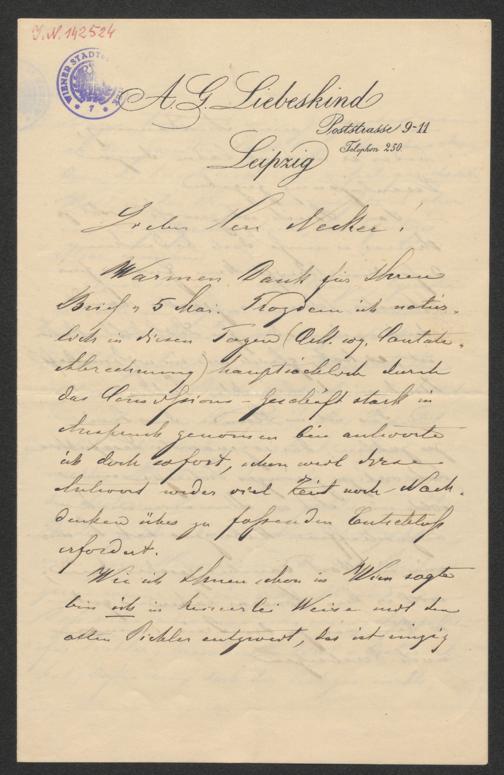 J. N. 142524
WIENER STADT
7
A. G. Liebeskind
Poststrasse 9-11
Telephon 250.
Leipzig
Lieber Herr Necker!
Warmen Dank für Ihren
Brief v 5 Mai. Trozdem ich natür-
lich in diesen Tagen (
Abrechnung) hauptsächlich durch
das Comissions-Geschäft stark in
Anspruch genomen bin antworte
ich doch sofort, schon weil diese
Antwort weder viel Zeit noch Nach-
denken über zu fassenden Entschluß
erfordert.
Wie ich Ihnen schon in Wien sagte
bin ich in keinerlei Weise mit dem
alten Pichler entzweit, das ist einzig